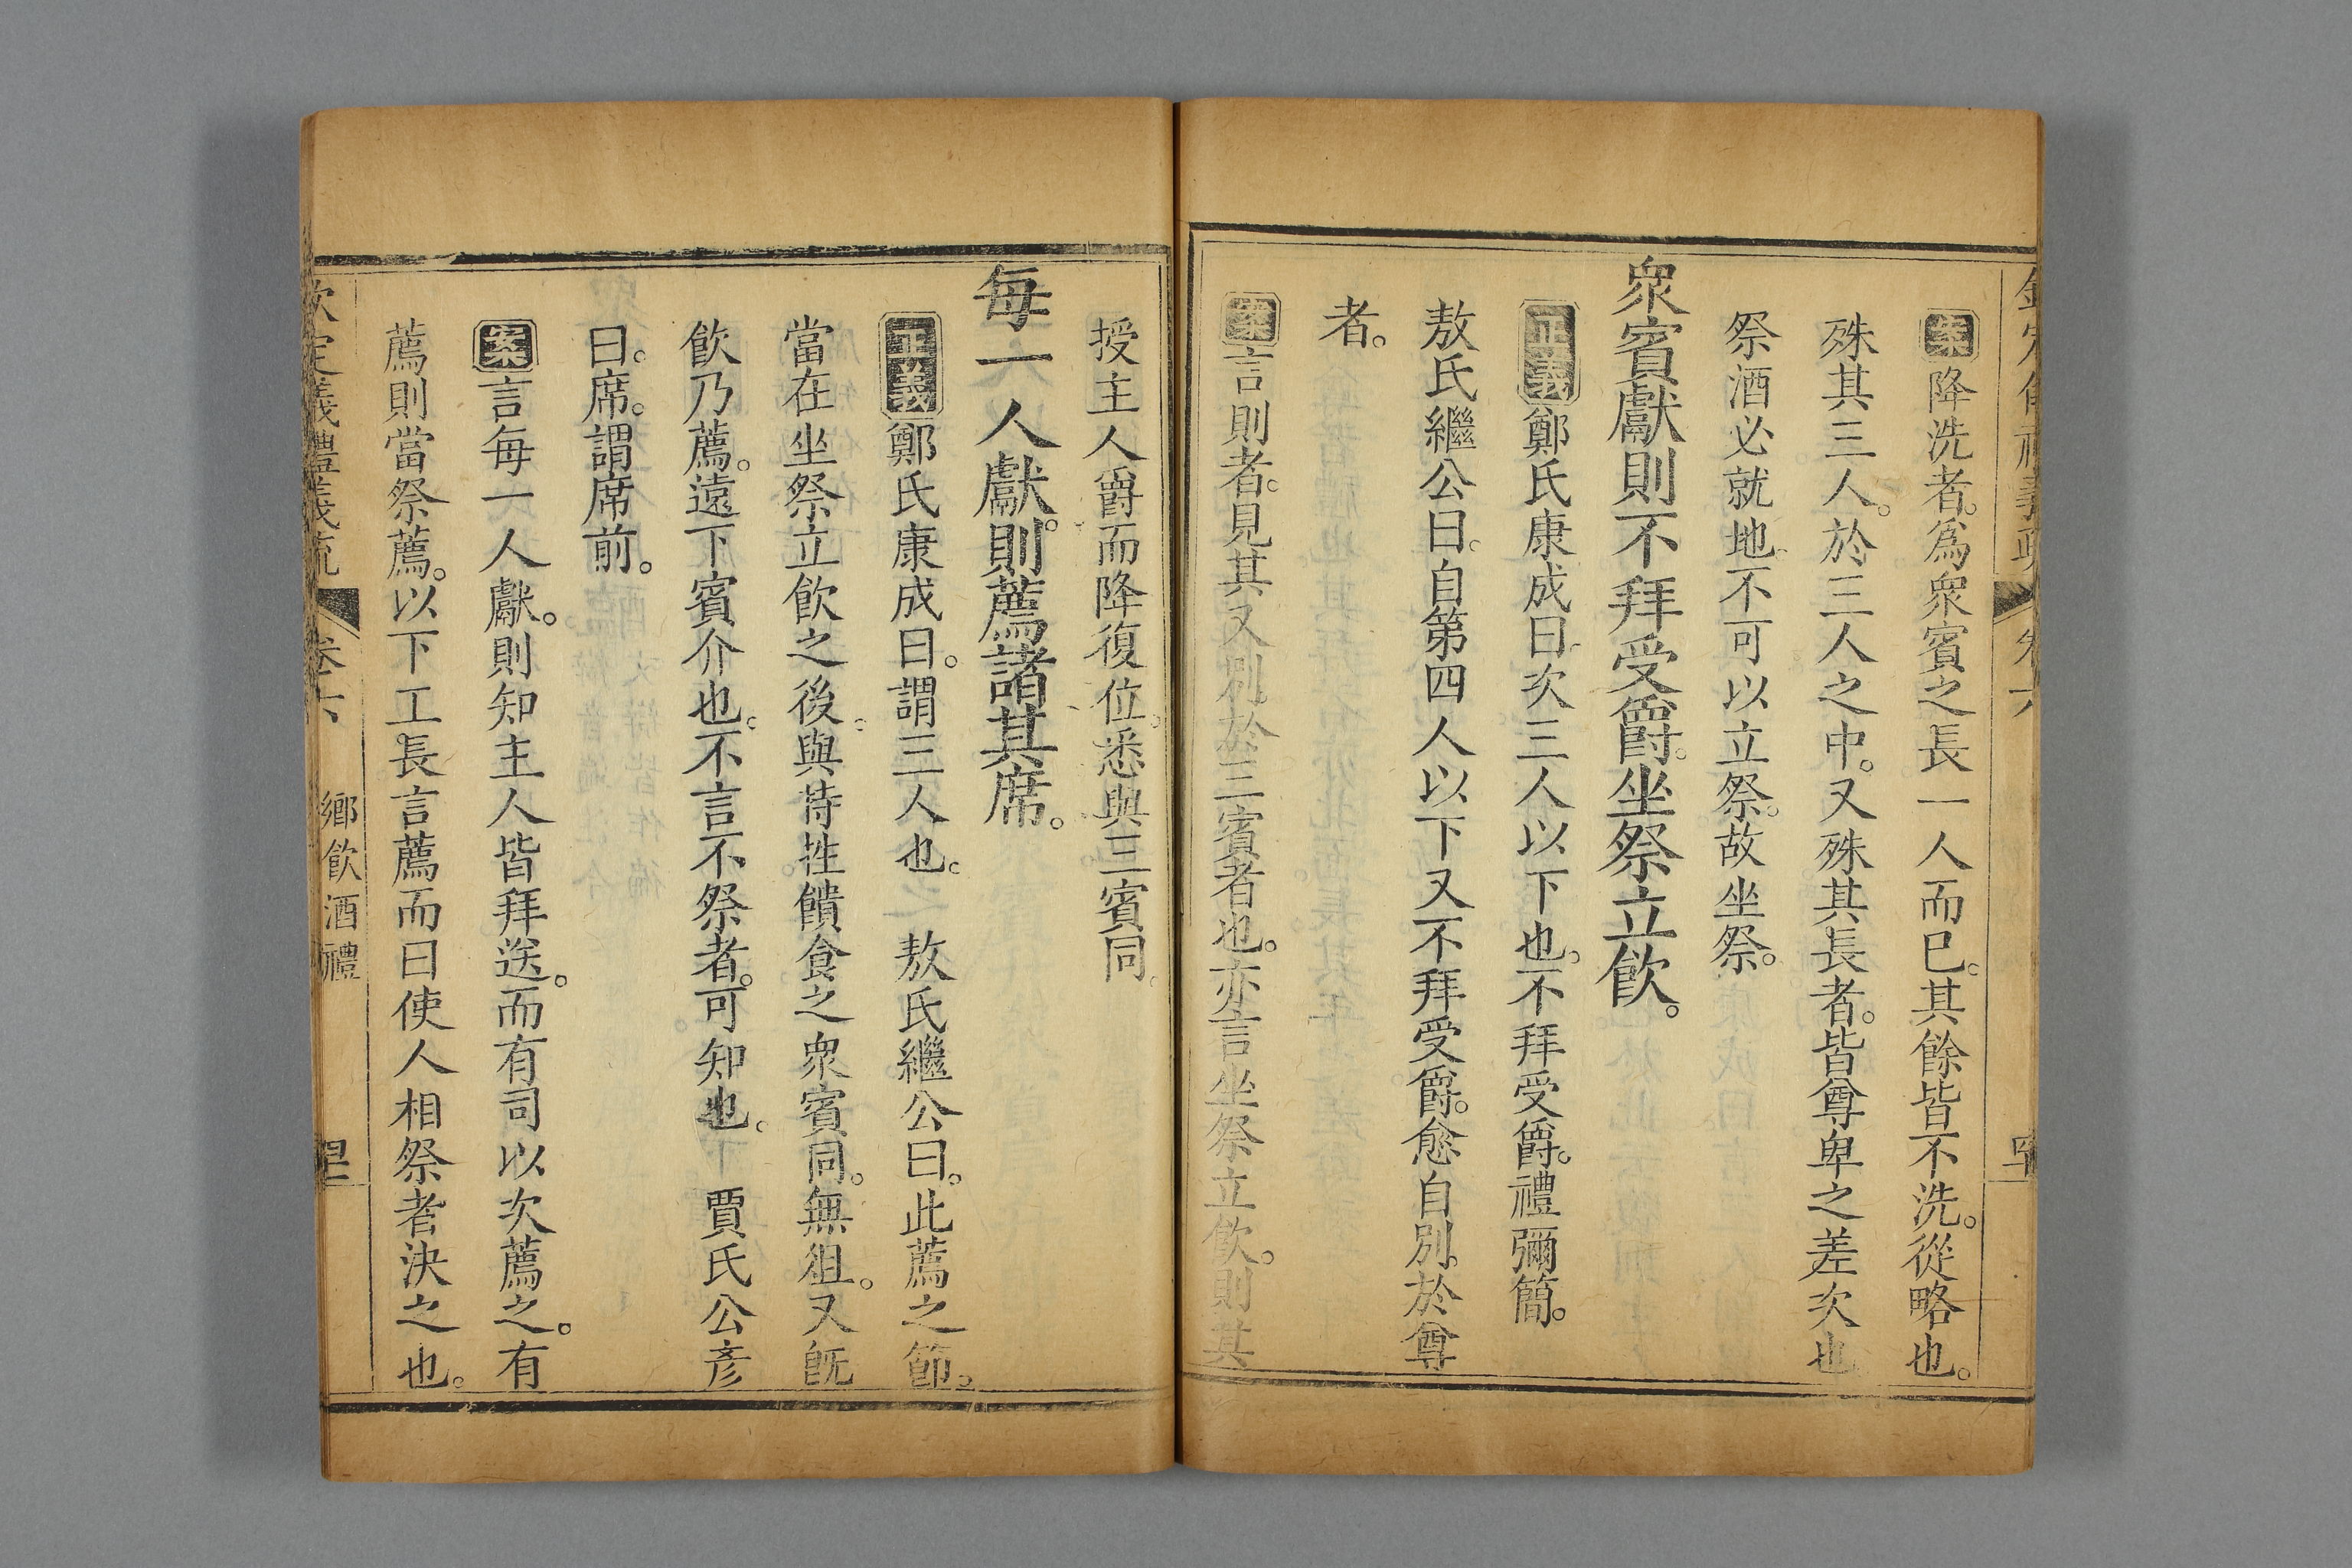 案降洗者。爲衆賓之長一人而已。其餘皆不洗。從略也。
殊其三人。於三人之中。又殊其長者。皆尊卑之差次也
祭酒必就地。不可以立祭。故坐祭。
衆賓獻則不拜受爵。坐祭立飮。
正義鄭氏康成曰。次三人以下也。不拜受爵。禮彌簡。
敖氏繼公曰。自第四人以下又不拜受爵。愈自別於尊
者。
案言則者。見其又別於三賓者也。亦言坐祭立飮。則其
授主人爵而降復位。悉與三賓同。
每一人獻。則薦諸其席。
正義鄭氏康成曰。謂三人也。 敖氏繼公曰。此薦之節。
當在坐祭立飮之後。與特牲饋食之衆賓同。無俎。又旣
飮乃薦。遠下賓介也。不言不祭者。可知也。 賈氏公彥
曰。席。謂席前。
案言每一人獻。則知主人皆拜送。而有司以次薦之。有
薦則當祭薦。以下工長言薦而曰使人相祭者決之也。
欽定義禮義疏 卷六 鄕飮酒禮